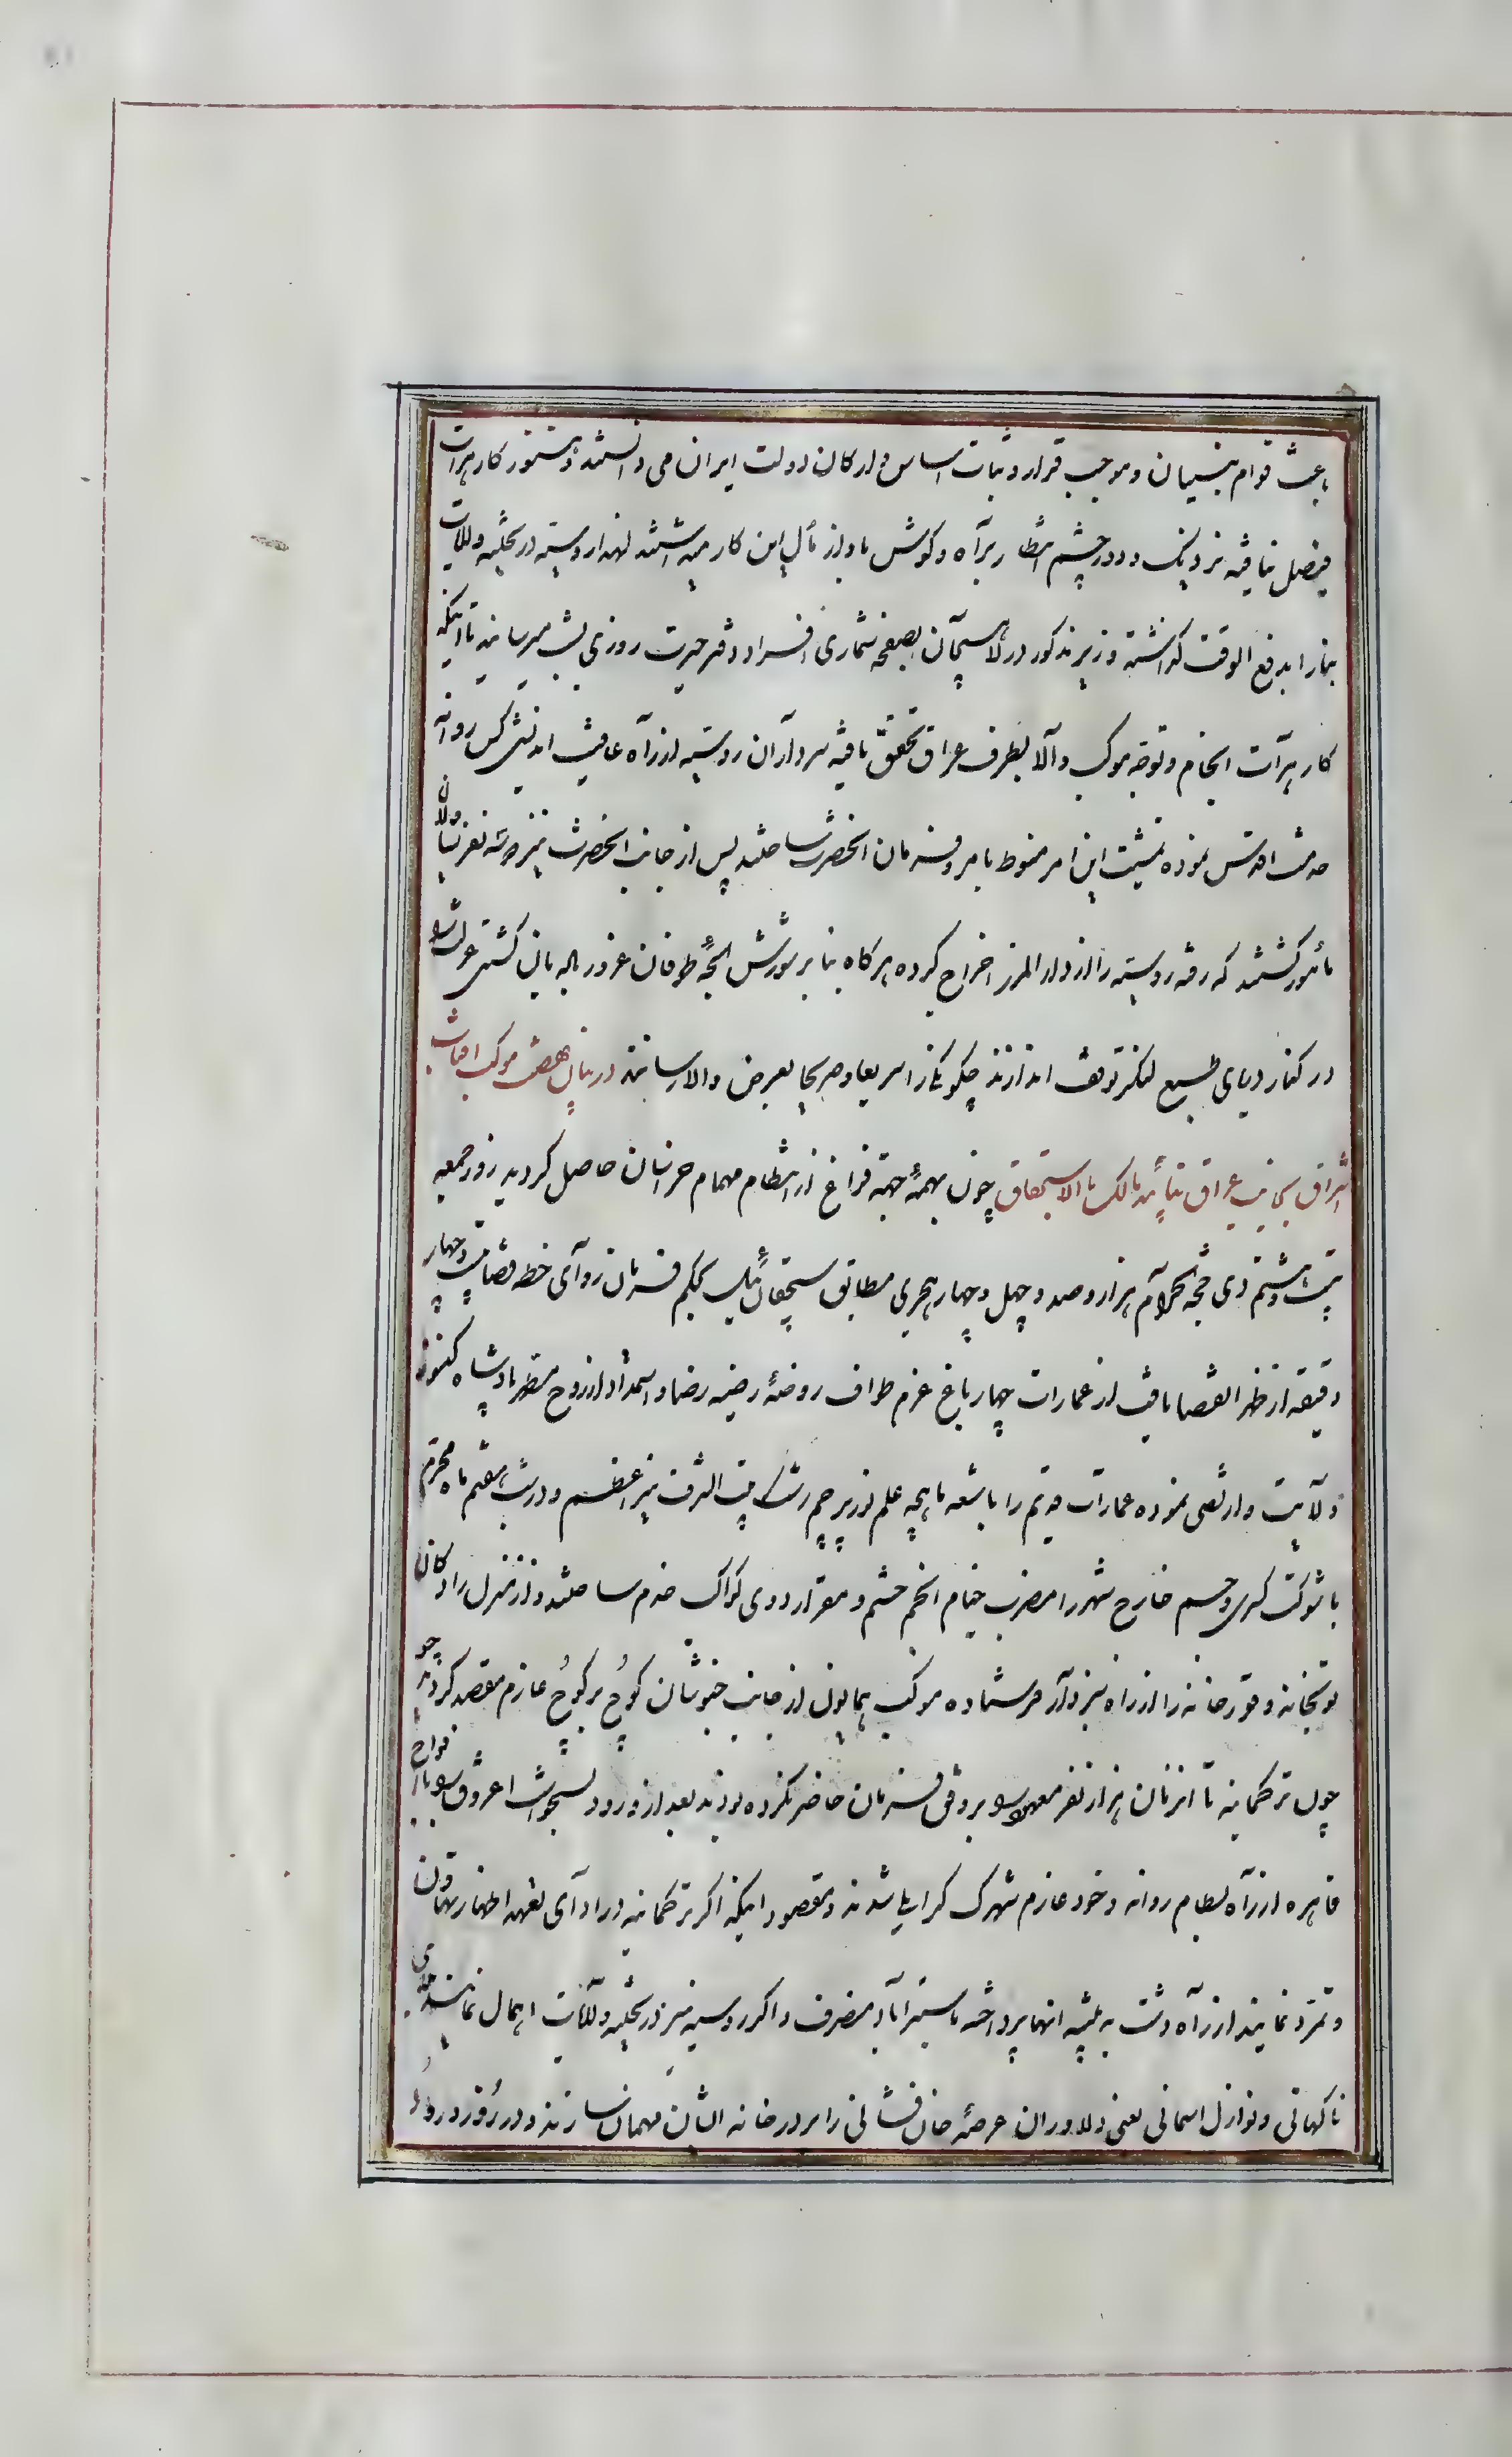 باعث قوام بنیان و موجب قرار و ثبات اساس و ارکان دولت ایران می دانستند و هنوز کار هرات
فیصل نیافته نزدیک و دور چشم انتظار براه و گوش بآواز مآل این کار میداشتند لهذا روسیه در تخلیه ولایات
بنا را بدفع الوقت گذاشته وزیر مذکور در لاهیجان بصفحه شماری افراد دفتر حیرت روزی بشب میرسانید تا اینکه
کار هرات انجام و توجه موکب والا بطرف عراق تحقق یافته سرداران روسیه از راه عاقبت اندیشی کس روانه
خدمت اقدس نموده تمشیت این امر منوط بامر و فرمان انحضرت ساختند پس از جانب انحضرت نیز دو سه نفر
مأمور گشتند که رفته روسیه را از دار المرز اخراج کرده هرگاه بنا بر شورش لجهٔ طوفان غرور بالیان کشتی عزلت
در کنار دریای طبیع لنگر توقف اندازند چگونگی را سریعا و صریحا بعرض والا رسانند در بیان نهضت موکب افتاب
اشراق بجانب عراق بتأیید مالک بالاستحقاق چون بهمهٔ جهة فراغ از انتظام مهمام خراسان حاصل گردید روز جمعه
بیست و هشتم ذی حجه الحرام هزار و صد و چهل و چهار هجری مطابق سیچقان ئیل بحکم فرمان روای خطه قضا بیست و چهار
دقیقه از ظهر انقضا یافت از عمارات چهار باغ عزم طواف روضهٔ رضیه رضا و استمداد از روح مطهر پادشاه کشور
ولایت و ارتضی نموده عمارات قدیم را باشعه ماهچه علم زرپرچم رشک بیت الشرف نیر اعظم و در شب هفتم ماه محرم
با شوکت کسری و جم خارج شهر را مضرب خیام انجم حشم و مقر اردوی کواکب خدم ساختند و از منزل رادکان
توپخانه و قورخانه را از راه سبزوار فرستاده موکب همایون از جانب خبوشان کوچ بر کوچ عازم مقصد گردید
چون ترکمانیه تا انزمان هزار نفر معهود بر وفق فرمان حاضر نکرده بودند بعد از ورود بسمت اغروق افواج
قاهره از راه بسطام روانه و خود عازم شهرک گرایلی شدند و مقصود اینکه اگر ترکمانیه در ادای تعهد اظهار تهاون
و تمرد نمایند از راه دشت به تنبیه انها پرداخته باستراباد منصرف و اگر روسیه نیز در تخلیه ولایات اهمال نمایند
ناکهانی و نوازل اسمانی یعنی دلاوران عرصهٔ جان فشانی را سر در خانه ایشان مهمان سازند و در روز ورود